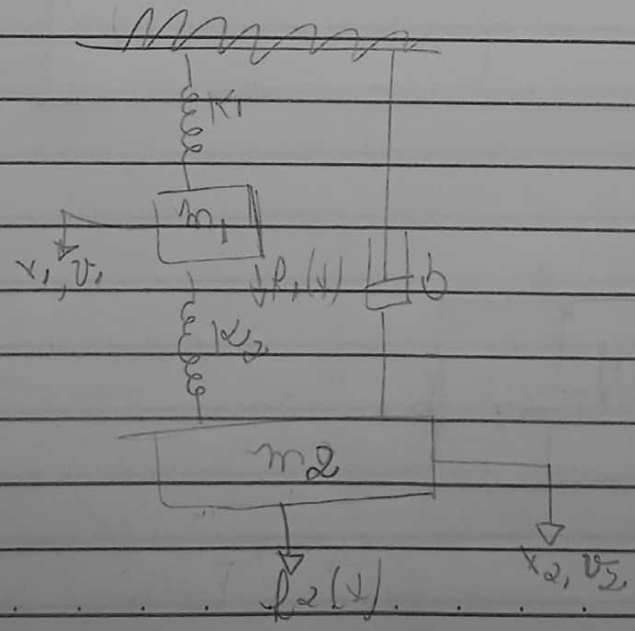 K1
m1
x1, v1
f1(t)
b
K2
m2
x2, v2
f2(t)